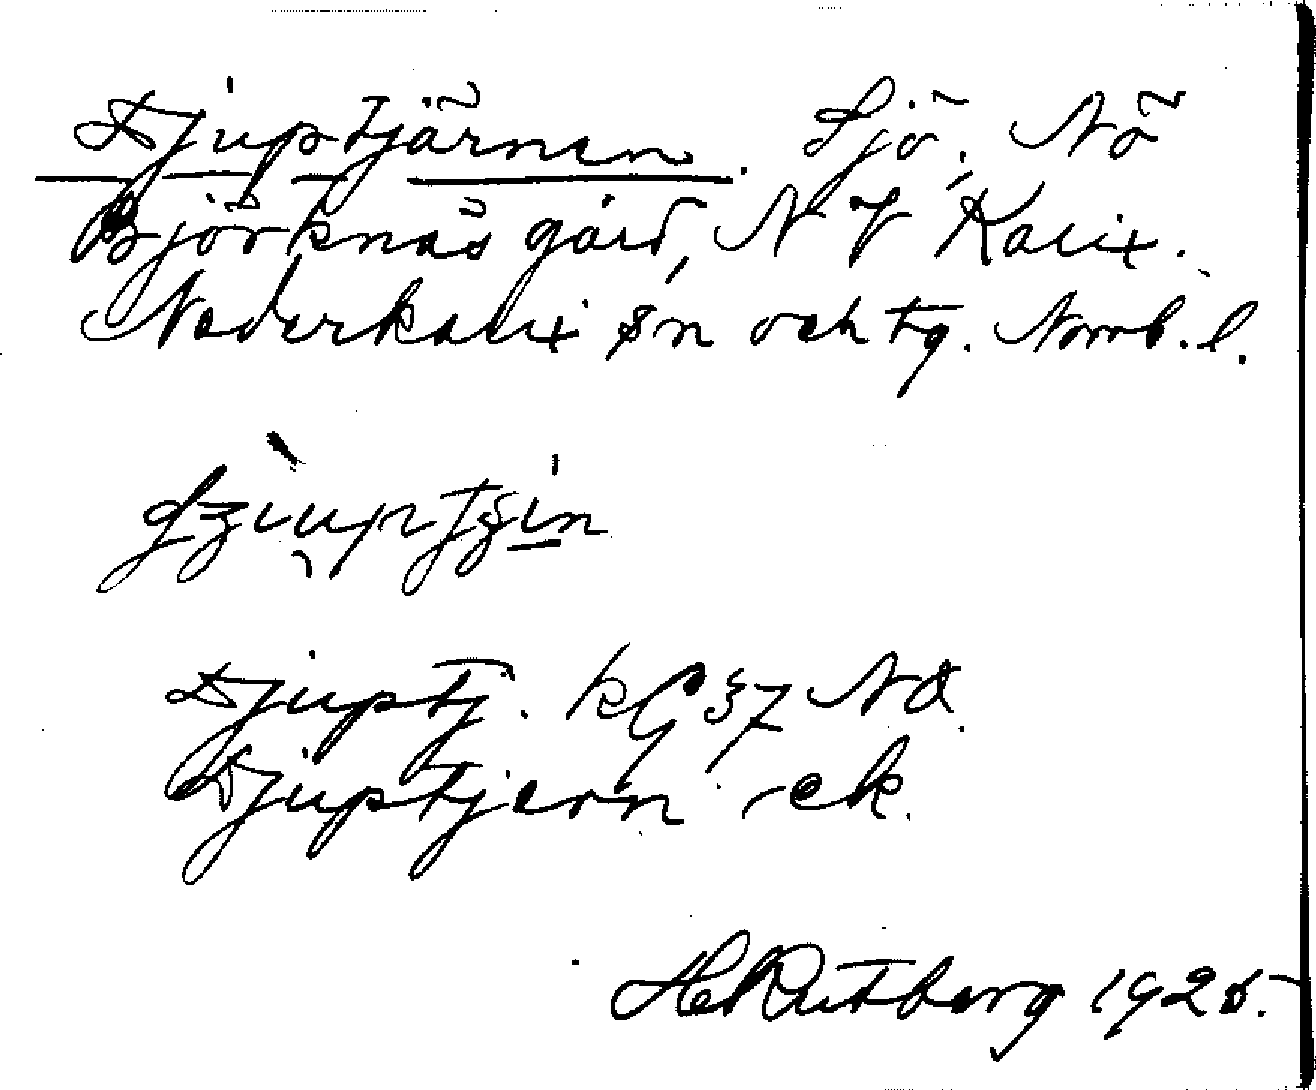 Djuptjärnen. Sjö, NÖ
Björknäs gård, NV Kalix.
Nederkalix sn och tg. Norrb. l.
Djuptj. kG 37 NÖ.
Djuptjern - ek.
H Rutberg 1925.